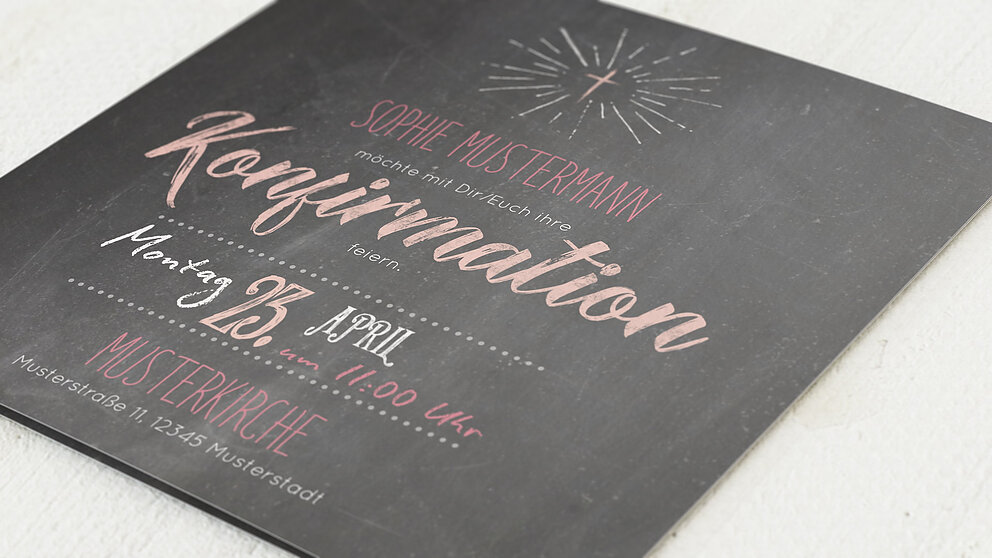 SOPHIE MUSTERMANN
möchte mit Dir/Euch ihre
Konfirmation
feiern.
Montag 23. APRIL
um 11:00 Uhr
MUSTERKIRCHE
Musterstraße 11, 12345 Musterstadt